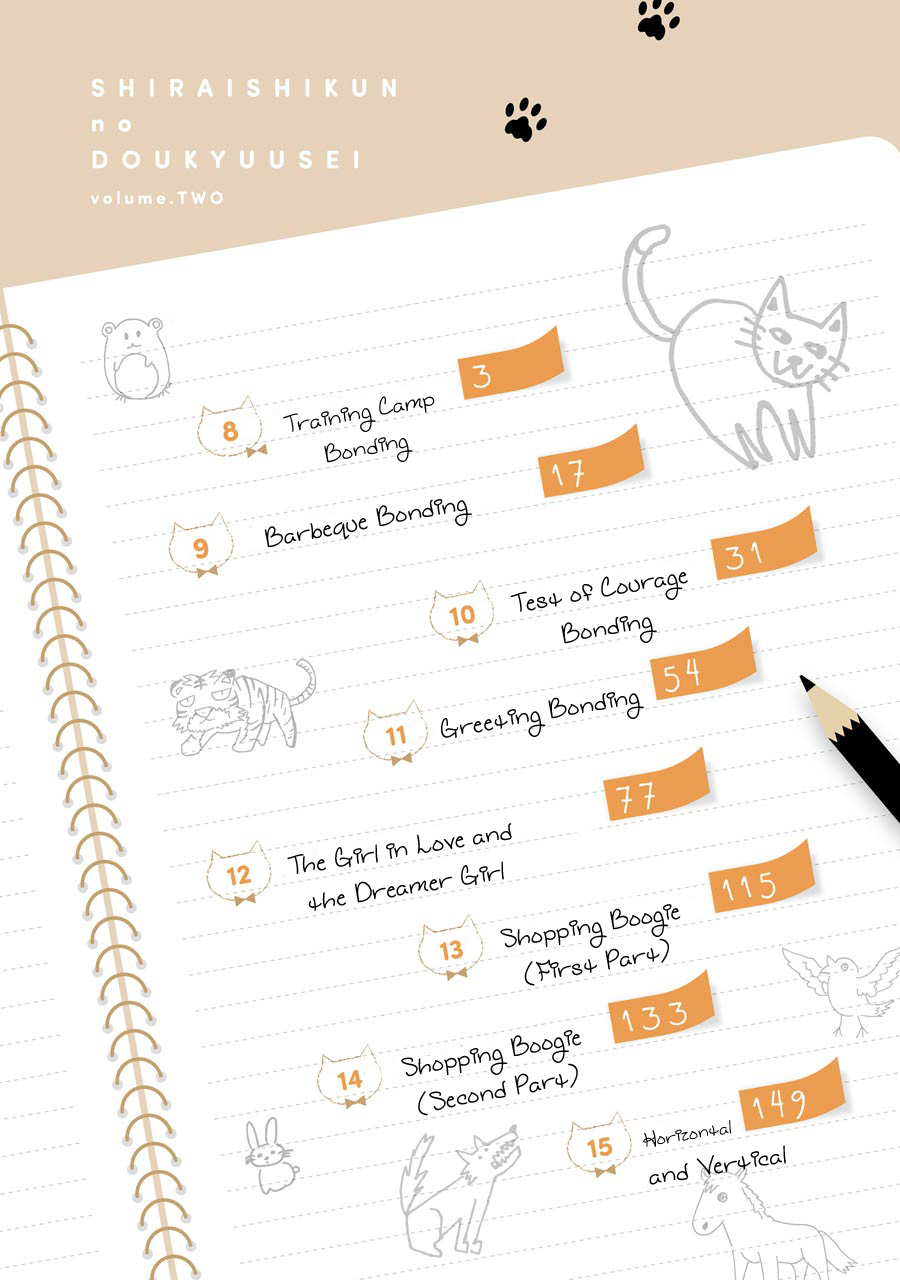 SHIRAISHIKUN
no
DOUKYUUSEI
volume.TWO
3
8
Training Camp
Bonding
17
9
Barbeque Bonding
31
10
Test of Courage
Bonding
54
11
Greeting Bonding
77
12
The Girl in Love and
the Dreamer Girl
115
13
Shopping Boogie
(First Part)
133
14
Shopping Boogie
(Second Part)
149
15
Horizontal
and Vertical